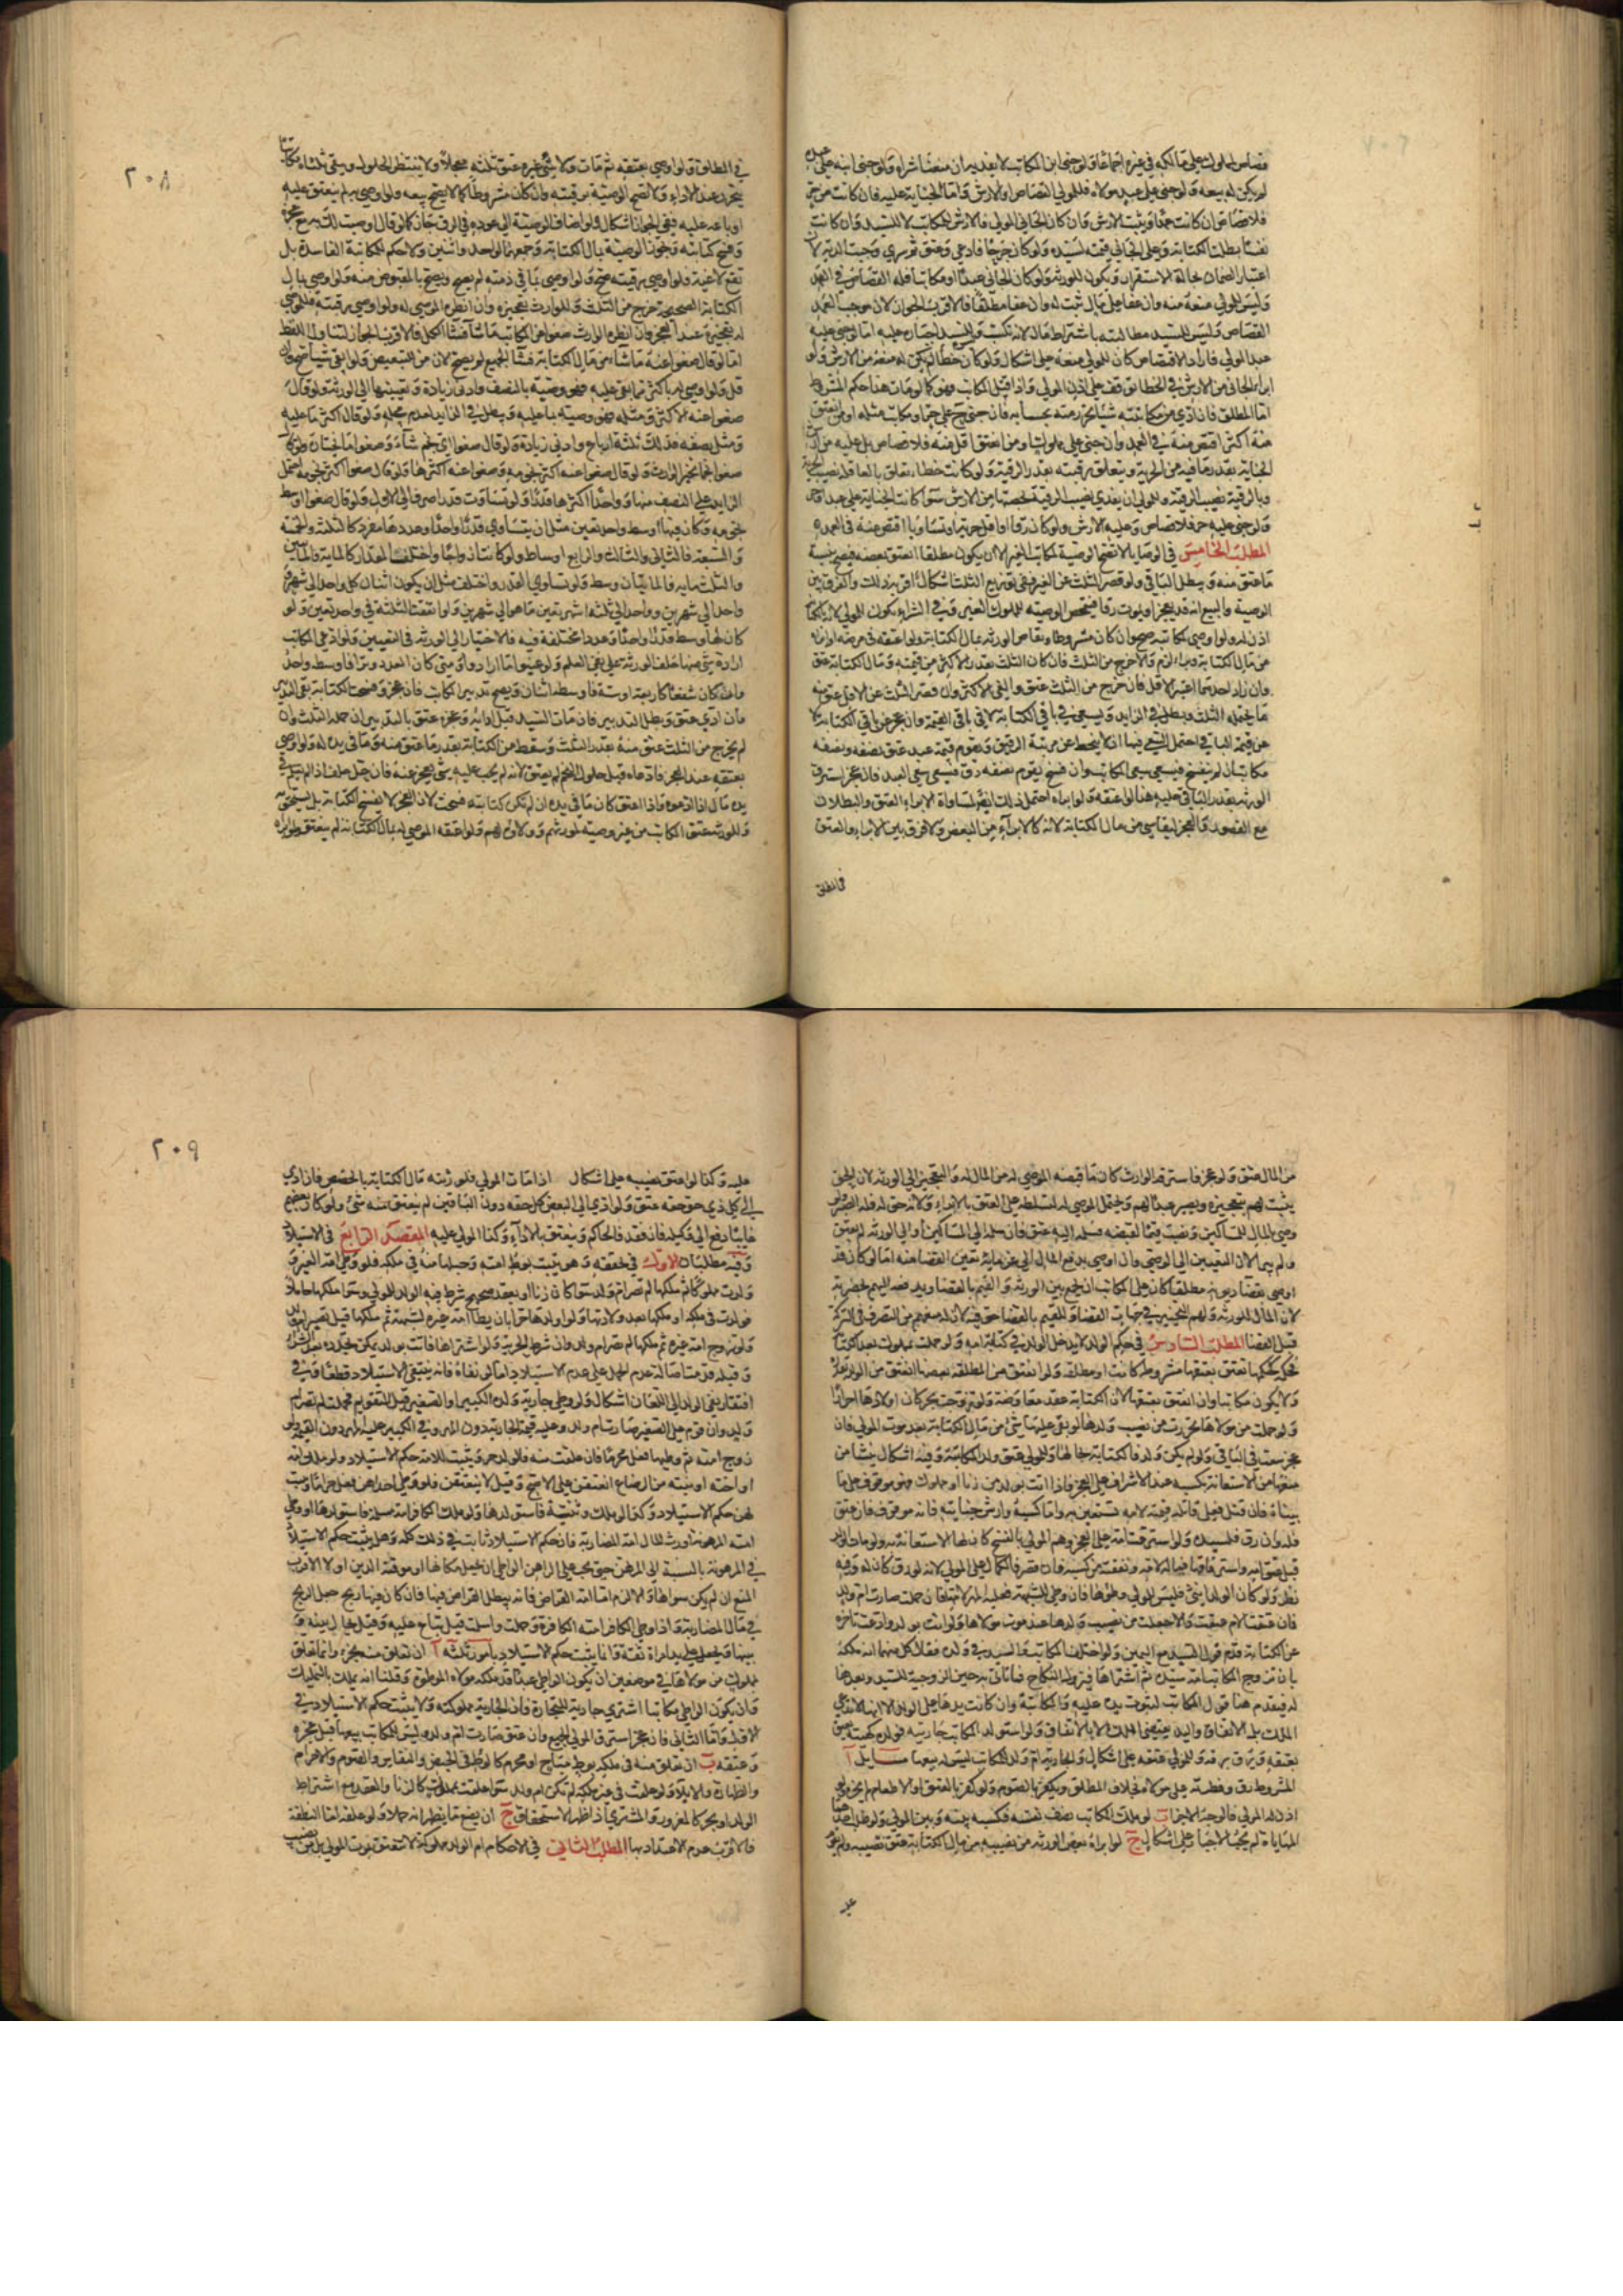 قصاص المملوك على مالكه في غيره اجماعا ولو جنى ابن المكاتب لا بعد
لم يكن له بيعه ولو جنى على عبد مولاه فللمولى القصاص والارش واما الجناية عليه فان كانت من حر
فلا قصاص وان كانت عمدا ويثبت الارش وان كان الجاني المولى فالارش للمكاتب لا للسيد وان كانت
نفسا بطلت الكتابة وعلى الجاني قيمته لسيده ولو كان جرحا فادى وعتق ثم سرى وجبت الدية لان
اعتبار الضمان حالة الاستقرار ويكون للورثة ولو كان الجاني عبدا او مكاتبا فله القصاص في العمد
وليس للمولى منعه منه وان عفا على مال ثبت له وان عفا مطلقا فالاقرب الجواز لان موجب العمد
القصاص وليس للسيد مطالبته باشتراط مال لانه تكسب وليس للسيد اجباره عليه اما لو جنى عليه
عبد المولى فاراد الاقتصاص كان للمولى منعه على اشكال ولو كان خطأ لم يكن له منعه من الارش ولو
ابرأ الجاني من الارش في الخطا توقف على اذن المولى واذا قتل المكاتب فهو كما لو مات هذا حكم المشروط
اما المطلق فان ادى من مكاتبته شيئا تحرر منه بحسابه فان جنى ح على حر او مكاتب مثله او من انعتق
منه اكثر اقتص منه في العمد وان جنى على مملوك او من انعتق اقل منه فلا قصاص بل عليه من ارش
الجناية بقدر ما فيه من الحرية ويتعلق برقبته بقدر الرقية ولو كانت خطاء تعلق بالعاقلة نصيب الحرية
وبالرقبة نصيب الرقية وللمولى ان يفدى نصيب الرقبة بحصتها من الارش سوا كانت الجناية على عبد او حر
ولو جنى عليه حر فلا قصاص وعليه الارش ولو كان رقا او اقل حرية او تساويا اقتص منه في العمد
المطلب الخامس في الوصايا لا تصح الوصية لمكاتب الغير الا ان يكون مطلقا انعتق بعضه فيصح بنسبة
ما عتق منه ويبطل الباقي ولو قصر الثلث عن الغير ففي توزيع الثلث اشكال اقربه ذلك والفرق بين
الوصية والبيع انه قد يعجز او يموت رقا فيتمحض الوصية لمملوك الغير وفي الشراء يكون للمولى
اذن له ولو اوصى لمكاتبه صح وان كان مشروطا ويقاص الورثة بمال الكتابة ولو اعتقه في مرضه او ابراه
من مال الكتابة وبرا لزم والا خرج من الثلث فان كان الثلث بقدر الاكثر من قيمته ومال الكتابة عتق
وان زاد احدهما اعتبر الاقل فان خرج من الثلث عتق والغى الاكثر وان قصر الثلث عن الاقل عتق منه
ما يحتمله الثلث وبطل في الزايد ويسعى في باقي الكتابة لا في باقي القيمة وان عجز عن باقي الكتابة لا
عن قيمة الباقي احتمل السعي فيها اذ لا ينحط عن مرتبة الرقيق ويقوم قيمة عبد عتق نصفه ونصفه
مكاتب ان لم نفسخ فيسعى سعي المكاتب وان فسخ يقوم نصفه رق فيسعى سعى العبد فان عجز استرق
الورثة بقدر الباقي عليه هنا لو اعتقه ولو ابراه احتمل ذلك ايضا لمساواة الابراء العتق والبطلان
مع القصور والعجز لبقا شي من مال الكتابة لانه كالابراء من البعض ولا فرق بين الابراء والعتق
في المطلق
٢٠٨
في المطلق ولو اوصى بعتقه ثم مات ولا شئ غيره عتق ثلثه معجلا ولا ينتظر الحلول ويبقى ثلثاه مكاتبا
يتحرر عند الاداء ولا تصح الوصية برقبته وان كان مشروطا كما لا يصح بيعه ولو اوصى به لم ينعتق عليه
او باعه عليه ففي الجواز اشكال ولو اضاف الوصية الى عوده في الرق جاز كما لو قال اوصيت لك به مع عجزه
وفسخ كتابته وتجوز الوصية بمال الكتابة وجمعهما لواحد واثنين ولا حكم للكتابة الفاسدة بل
تقع لاغية ولو اوصى برقبته صح ولو اوصى بما في ذمته لم يصح ويصح بالمقبوض منه ولو اوصى بمال
الكتابة الصحيحة خرج من الثلث وللوارث تعجيزه وان انظره الموصى له ولو اوصى برقبته فللموصى
له تعجيزه عند العجز وان انظره الوارث ضعوا عن المكاتب ما شاء فشاء الكل فالاقرب الجواز لتناول اللفظ
اما لو قال ضعوا عنه ما شاء من مال الكتابة فشا الجميع لم يصح لان من للتبعيض ولو ابقى شيأ صح وان
قل ولو اوصى له باكثر ما بقى عليه فهو وصية بالنصف وادنى زيادة وتعيينها الى الورثة ولو قال
ضعوا عنه الاكثر ومثله فهو وصية بما عليه ويبطل في الزايد لعدم محله ولو قال اكثر ما عليه
ومثل نصفه فذلك ثلثة ارباع وادنى زيادة ولو قال ضعوا اي نجم شاء وضعوا ما يختار ولو قال
ضعوا نجما تخير الوارث ولو قال ضعوا عنه اكثر نجومه وضعوا عنه اكثرها ولو قال ضعوا اكثر نجومه احتمل
الزايد على النصف منها وواحدا اكثرها قدرا ولو تساوت قدرا صرف الى الاول ولو قال ضعوا اوسط
نجومه وكان فيها اوسط واحد تعين مثل ان يتساوى قدرا واحدا وعددها مفرد كالثلثة والخمسة
والسبعة فالثاني والثالث والرابع اوساط ولو كانت ازواجا واختلف المقدار كالماية والمايتين
والثلثماية فالمايتان وسط ولو تساوى القدر واختلف مثل ان يكون اثنان كل واحد الى شهر و
واحد الى شهرين وواحد الى ثلثة اشهر تعين ما هو الى شهرين ولو اتفقت الثلثة في واحد تعين ولو
كان لها اوسط قدرا واحدا وعددا مختلفة فيه فالاختيار الى الورثة في التعيين ولو ادعى المكاتب
ارادة شي منها حلف الورثة على نفي العلم ولو عينوا ما اراد واي متى كان العدد وترا فاوسطه واحد
وان كان شفعا كاربعة او ستة فاوسطه اثنان ويصح تدبير المكاتب فان عجز وفسخت الكتابة بقي التدبير
وان ادى عتق وبطل التدبير فان مات السيد قبل ادائه وعجزه عتق بالتدبير ان حمله الثلث وان
لم يخرج من الثلث عتق منه بقدر الثلث وسقط من الكتابة بقدر ما عتق منه وما في يده له ولو اوصى
بعتقه عند العجز فادعاه قبل حلول النجم لم يعتق لانه لم يجب عليه شئ يعجز عنه فان حل حلف اذا لم يعلم في
يده مال اذا ادعوه واذا اعتق كان ما في يده ان لم تكن كتابته فسخت لان العجز لا يفسخ الكتابة بل يستحق به
وللورثة عتق المكاتب من غير وصيته لمورثهم وولاؤه لهم ولو اعتقه الموصى له بمال الكتابة لم يعتق ولو ابراه
من المال عتق ولو عجز فاسترقه الوارث كان ما قبضه الموصى له من المال له والتعجيز الى الورثة لان الحق
يثبت لهم بتعجيزه ويصير عبدا لهم ويحتمل الموصى له لتسلطه على العتق بالابراء ولانه حق له فله الصبر ولو
وصى بالمال للمساكين ونصب قيما لقبضه فسلمه اليه عتق فان سلمه الى المساكين او الى الورثة لم يعتق
ولم يبرا لان التعيين الى الوصي وان اوصى بدفع المال الى غرمائه تعين القضا منه اما لو كان قد
اوصى بقضا ديونه مطلقا كان على المكاتب ان يجمع بين الورثة والقيم بالقضا ويدفعه اليهم بحضرته
لان المال للورثة ولهم التخيير في جهات القضا وللقيم بالقضا حق فيه لان له منعهم من التصرف في التركة
قبل القضا المطلب السادس في حكم الولد لا يدخل الولد في كتابة امه ولو حملت بمملوك بعد الكتابة
فحكمه حكمها تعتق بعتقها مشروطة كانت او مطلقة ولو انعتق من المطلقة بعضها انعتق من الولد بقدره
ولا يكون مكاتبا وان انعتق بعتقها لان الكتابة عقد معاوضة ولو تزوجت بحر كان اولادها احرارا
ولو حملت من مولاها تحررت من نصيب ولدها لو بقى عليها شئ من مال الكتابة بعد موت المولى فان
عجز سعت في الباقي ولو لم يكن ولد فالكتابة بحالها وللمولى عتق ولد المكاتبة وفيه اشكال ينشا من
منعها من الاستعانة بكسبه عند الاشراف على العجز فاذا اتت بولد من زنا او مملوك فهو موقوف على ما
بيناه فان قتل فعلى قاتله قيمته لامه تستعين به واما كسبه وارش جنايته فانه موقوف فان عتق
فله وان رق فلسيده ولو استرقت امه على العجز وهم المولى بالفسخ كان لها الاستعانة به ولو مات الولد
نظر ولو كان الولد انثى فليس للمولى وطؤها فان وطى للشبهة فعليه المهر لامها فان حملت صارت ام ولد
فان عتقت الام عتقت والا جعلت من نصيب ولدها عند موت مولاها ولو اتت بولد وادعت تاخره
عن الكتابة قدم قول السيد مع اليمين ولو اختلف المكاتب والسيد في ولده فقال كل منهما انه ملكه
بان تزوج المكاتب امة سيده ثم اشتراها
له فيقدم هنا قول المكاتب لثبوت يده عليه
المشروط رق وفطرته على مولاه بخلاف المطلق ويكفر بالصوم ولو كفر بالعتق او الاطعام لم يجزه ولو
اذن له المولى فالوجه الاجزاء ب لو ملك المكاتب نصف نفسه فكسبه بينه وبين المولى ولو طلب احدهما
المهاياة لم يجب الاجبار على اشكال ج لو ابراه بعض الورثة من نصيبه من مال الكتابة عتق نصيبه ولم يقوم
عليه
٢٠٩
عليه وكذا لو اعتق نصيبه على اشكال اذا مات المولى فلورثته مال الكتابة بالحصص فان ادى
الى كل ذي حق حقه عتق ولو ادى الى البعض كل حقه دون الباقين لم ينعتق منه شئ ولو كان بعضهم
غايبا دفع الى وكيله فان فقد فالحاكم وينعتق بالاداء وكذا المولى عليه المقصد الرابع في الاستيلاد
وفيه مطلبان الاول في تحققه وهو يثبت بوطئ امته وحبلها منه في ملكه فلو وطى امة الغير و
ولدت مملوكا ثم ملكها لم تصر ام ولد سوا كان زنا او بعقد صحيح شرط فيه الولد للمولى وسوا ملكها حاملا
فولدت في ملكه او ملكها بعد ولادتها ولو اولدها حرا بان يطأ امة غيره لشبهة ثم ملكها قبل تصير ام ولد
ولو تزوج امة غيره ثم ملكها لم تصر ام ولد وان شرط الحرية ولو اشتراها فاتت بولد يمكن تجدده بعد الشراء
وقبله قدمنا اصالة عدم الحمل على عدم الاستيلاد اما لو نفاه فانه ينتفي الاستيلاد قطعا وفي
افتقار نفي الولد الى اللعان اشكال ولو وطى جارية ولده الكبير او الصغير قبل التقويم فحملت لم تصر ام
ولد وان قوم على الصغير صارت ام ولد وعليه قيمة الجارية دون المهر وفي الكبير عليه المهر دون القيمة ولو
زوج امته ثم وطيها فعل محرما فان علقت منه فالولد حر ويثبت للامة حكم الاستيلاد ولو ملك امه
او اخته او بنته من الرضاع انعتقن على الاصح وقيل لا ينعتقن فلو وطى احداهن فعل حراما وثبت
لهن حكم الاستيلاد وكذا لو ملك وثنية فاستولدها ولو ملك الكافر امة مسلمة فاستولدها او وطى
امته المرهونة او رب المال امة المضاربة فان حكم الاستيلاد ثابت في ذلك كله وهل يثبت حكم الاستيلاد
في المرهونة بالنسبة الى المرتهن حتى يجب على الراهن الواطي ان يجعل مكانها او توفية الدين او لا الاقرب
المنع ان لم يكن سواها والا لزم اما امة القراض فانه يبطل القراض فيها فان كان فيها ربح جعل الربح
في مال المضاربة واذا وطى الكافر امته الكافرة وحملت واسلمت قيل تباع عليه وقيل يحال بينه و
بينها وتجعل على يد امراة ثقة وانما يثبت حكم الاستيلاد بامور ثلثة ا ان تعلق منه بحر وانما تعلق
بمملوك من مولاها في موضعين ان يكون الواطي عبدا قد ملكه مولاه الموطوءة وقلنا انه يملك بالتمليك
وان يكون الواطي مكاتبا اشترى جارية للتجارة فان الجارية مملوكته ولا يثبت حكم الاستيلاد في
الاول واما الثاني فان عجز استرق المولى الجميع وان عتق صارت ام ولد وليس للمكاتب بيعها قبل عجزه
وعتقه ب ان تعلق منه في ملكه بوطئ مباح او محرم كالوطى في الحيض والنفاس والصوم والاحرام
والظهار والايلاء ولو علقت في غير ملكه لم تكن ام ولد سوا علقت بمملوك كالزنا والعقد مع اشتراط
الولد او بحر كالمغرور والمشتري اذا ظهر الاستحقاق ج ان يضع ما يظهر انه حملا ولو علقه اما النطفة
فالاقرب عدم الاعتداد بها المطلب الثاني في الاحكام ام الولد مملوكة لا تنعتق بموت المولى بل من نصيب